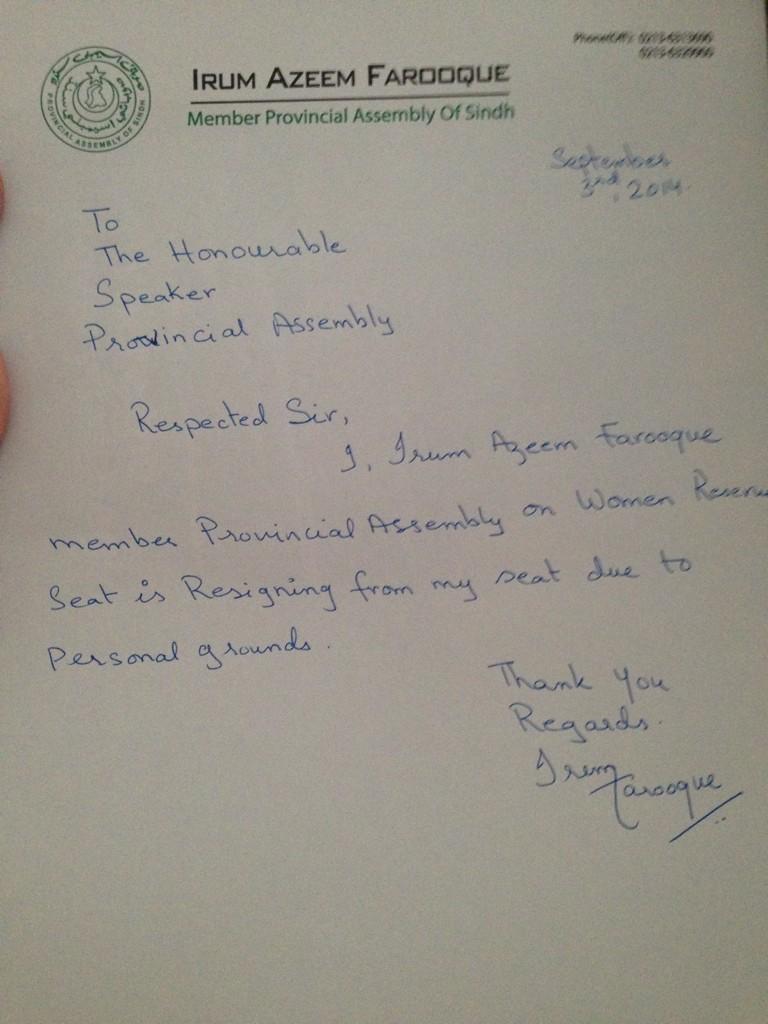 IRUM AZEEM FAROOQUE
Member Provincial Assembly Of Sindh
PROVINCIAL ASSEMBLY OF SINDH
September
3rd, 2014.
To
The Honourable
Speaker
Provincial Assembly
Respected Sir,
I, Irum Azeem Farooque
member Provincial Assembly on Women Reserve
Seat is Resigning from my seat due to
Personal grounds.
Thank You
Regards.
Irum
Farooque